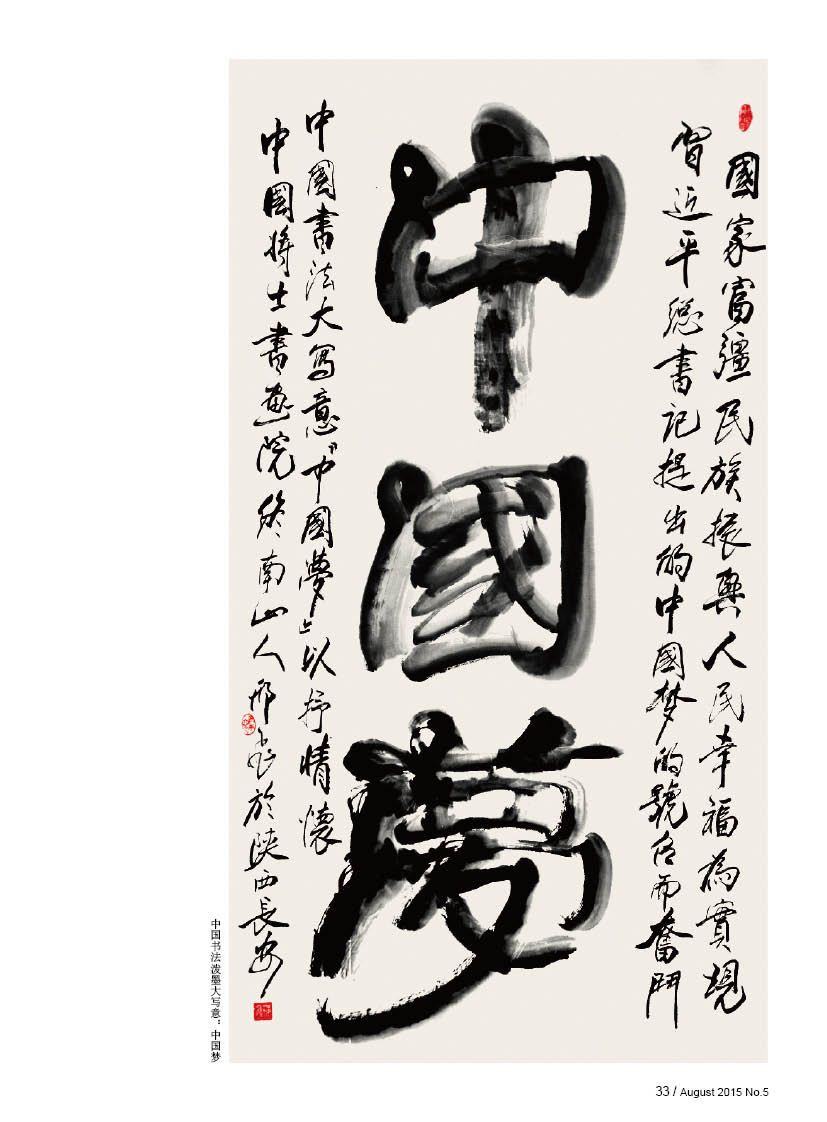 國家富疆民族振興人民幸福為實現
習近平總書記提出的中國梦的號召而奮鬥
中國夢
中國書法大寫意“中國夢”以抒情懷
中國将士書画院終南山人邢 於陝西長安
中国书法泼墨大写意：中国梦
33 / August 2015 No.5